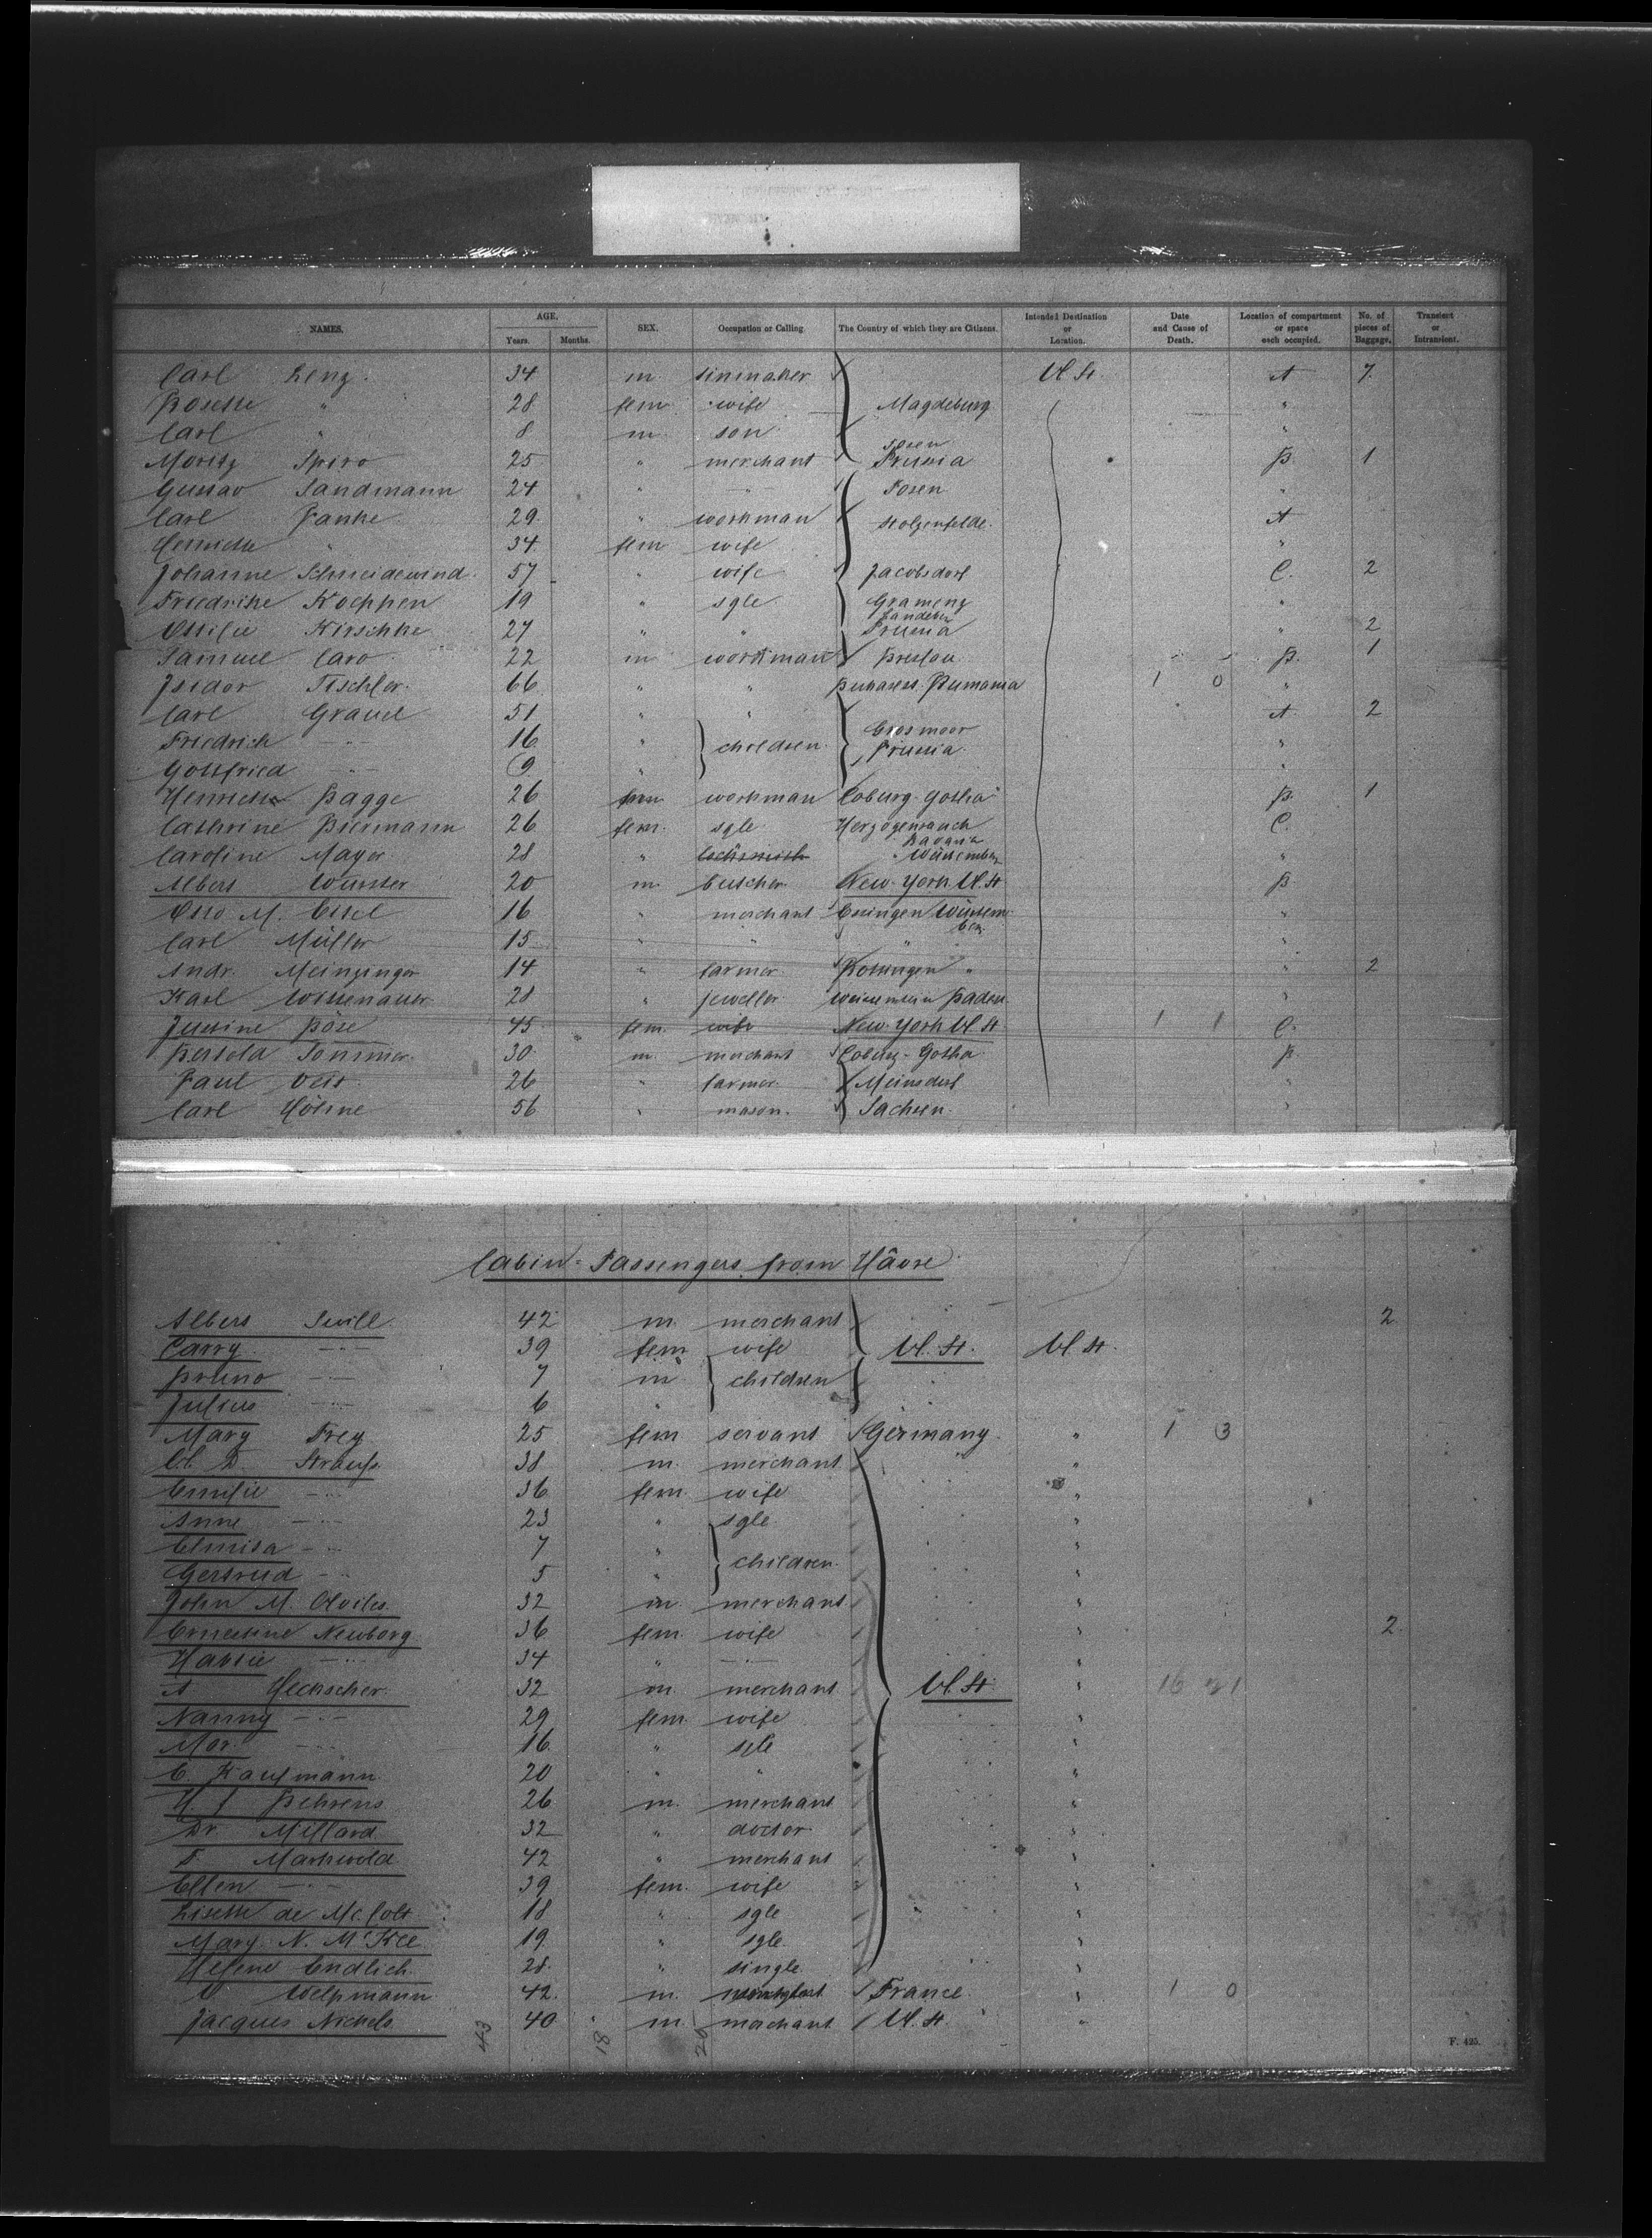 NAMES. AGE. SEX. Occupation or Calling. The Country of which they are Citizens. Intended Destination or Location. Date and Cause of Death. Location of compartment or space each occupied. No. of pieces of Baggage. Transient or Intransient.
Years. Months.
Carl Lenz 34 m tinmaker U.St. A 7.
Rosette " 28 fem wife Magdeburg "
Carl " 8 m son "
Moritz Spiro 25 " merchant Posen Prussia B. 1
Gustav Sandmann 24 " " Posen "
Carl Panke 29. " workman Stolzenfelde A
Henriette " 34 fem wife "
Johanne Schneidewind. 57 " wife Jacobsdorf C. 2
Friedrike Koeppen 19 " sgle Gramenz "
Ottilie Kirschke 27 " " Prussia " 2
Samuel Caro 22 m workman Breslau B. 1
Isidor Tischler. 66 " " Bucharest Rumania 1 0 "
Carl Grauel 51 " " A 2
Friedrich -"- 16 " children Grosmoor Prussia "
Gottfried -"- 9 " "
Henriette Bagge 26 fem workman Coburg-Gotha B. 1
Cathrine Biermann 26 fem. sgle Herzogenaurach Bavaria C.
Caroline Mayer 28 " Württemberg "
Albert Wurster 20 m butcher New-York U.St B.
Otto M. Eisel 16 " merchant Essingen Württemberg "
Carl Müller 15 " " " "
Andr. Meinzinger 14 " farmer " " 2
Karl Wittenauer 28 " jeweller Baden "
Justine Böse 45 " fem. wife New-York U.St 1 1 C.
Bertold Sommer 30 m. merchant Coburg-Gotha B
Paul Veit 26 " farmer Meinsdorf "
Carl Höhne 56 " mason. Sachsen "
Cabin-Passengers from Hâvre
Albert Swill 42 m merchant 2
Carry -"- 39 fem wife U.St. U.St.
Bruno -"- 7 m children
Julius -"- 6 "
Mary Frey 25 fem servant Germany " 1 3
D. Strauss 38 m. merchant "
Emilie -"- 36 fem. wife "
Anne -"- 23 " sgle "
Elmira -"- 7 " children "
Gertrud -"- 5 " "
John M. Oviles 32 m. merchant "
Ernestine Newborg 36 fem. wife " 2
Hattie -"- 34 " -"- "
A Heckscher 32 m. merchant U.St. " 16 21
Nanny -"- 29 fem. wife "
-"- 16 " sgle "
C. Kaufmann 20 " " "
H. J. Behrens 26 m. merchant "
Dr. Millard 32 " doctor "
Markwold 42 " merchant "
Ellen -"- 39 fem. wife "
Lisette de Mc.Colt 18 " sgle "
Mary N. McKee 19 " sgle "
Helene Endlich 28. " single "
Welpmann 42. m. France " 1 0
Jacques Nichols 40 " m. merchant U.St. "
43 18 20
F. 425.